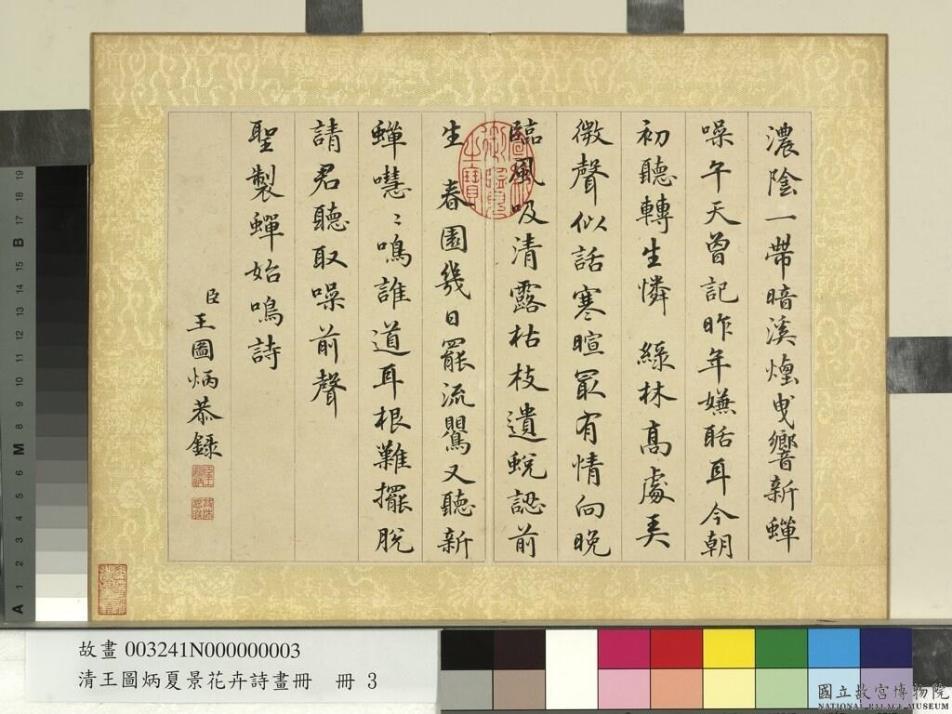 濃陰一帶暗溪煙曳響新蟬
噪午天曾記昨年嫌聒耳今朝
初聽轉生憐 綠林高處奏
微聲似話寒暄最有情向晚
臨風吸清露枯枝遺蛻認前
生 春園幾日罷流鶯又聽新
蟬嘒〻鳴誰道耳根難擺脫
請君聽取噪前聲
聖製蟬始鳴詩
臣王圖炳恭錄
故畫 003241N000000003
清王圖炳夏景花卉詩畫冊 冊 3
國立故宮博物院
NATIONAL PALACE MUSEUM
A 1 2 3 4 5 6 M 8 9 10 11 12 13 14 15 B 17 18 19